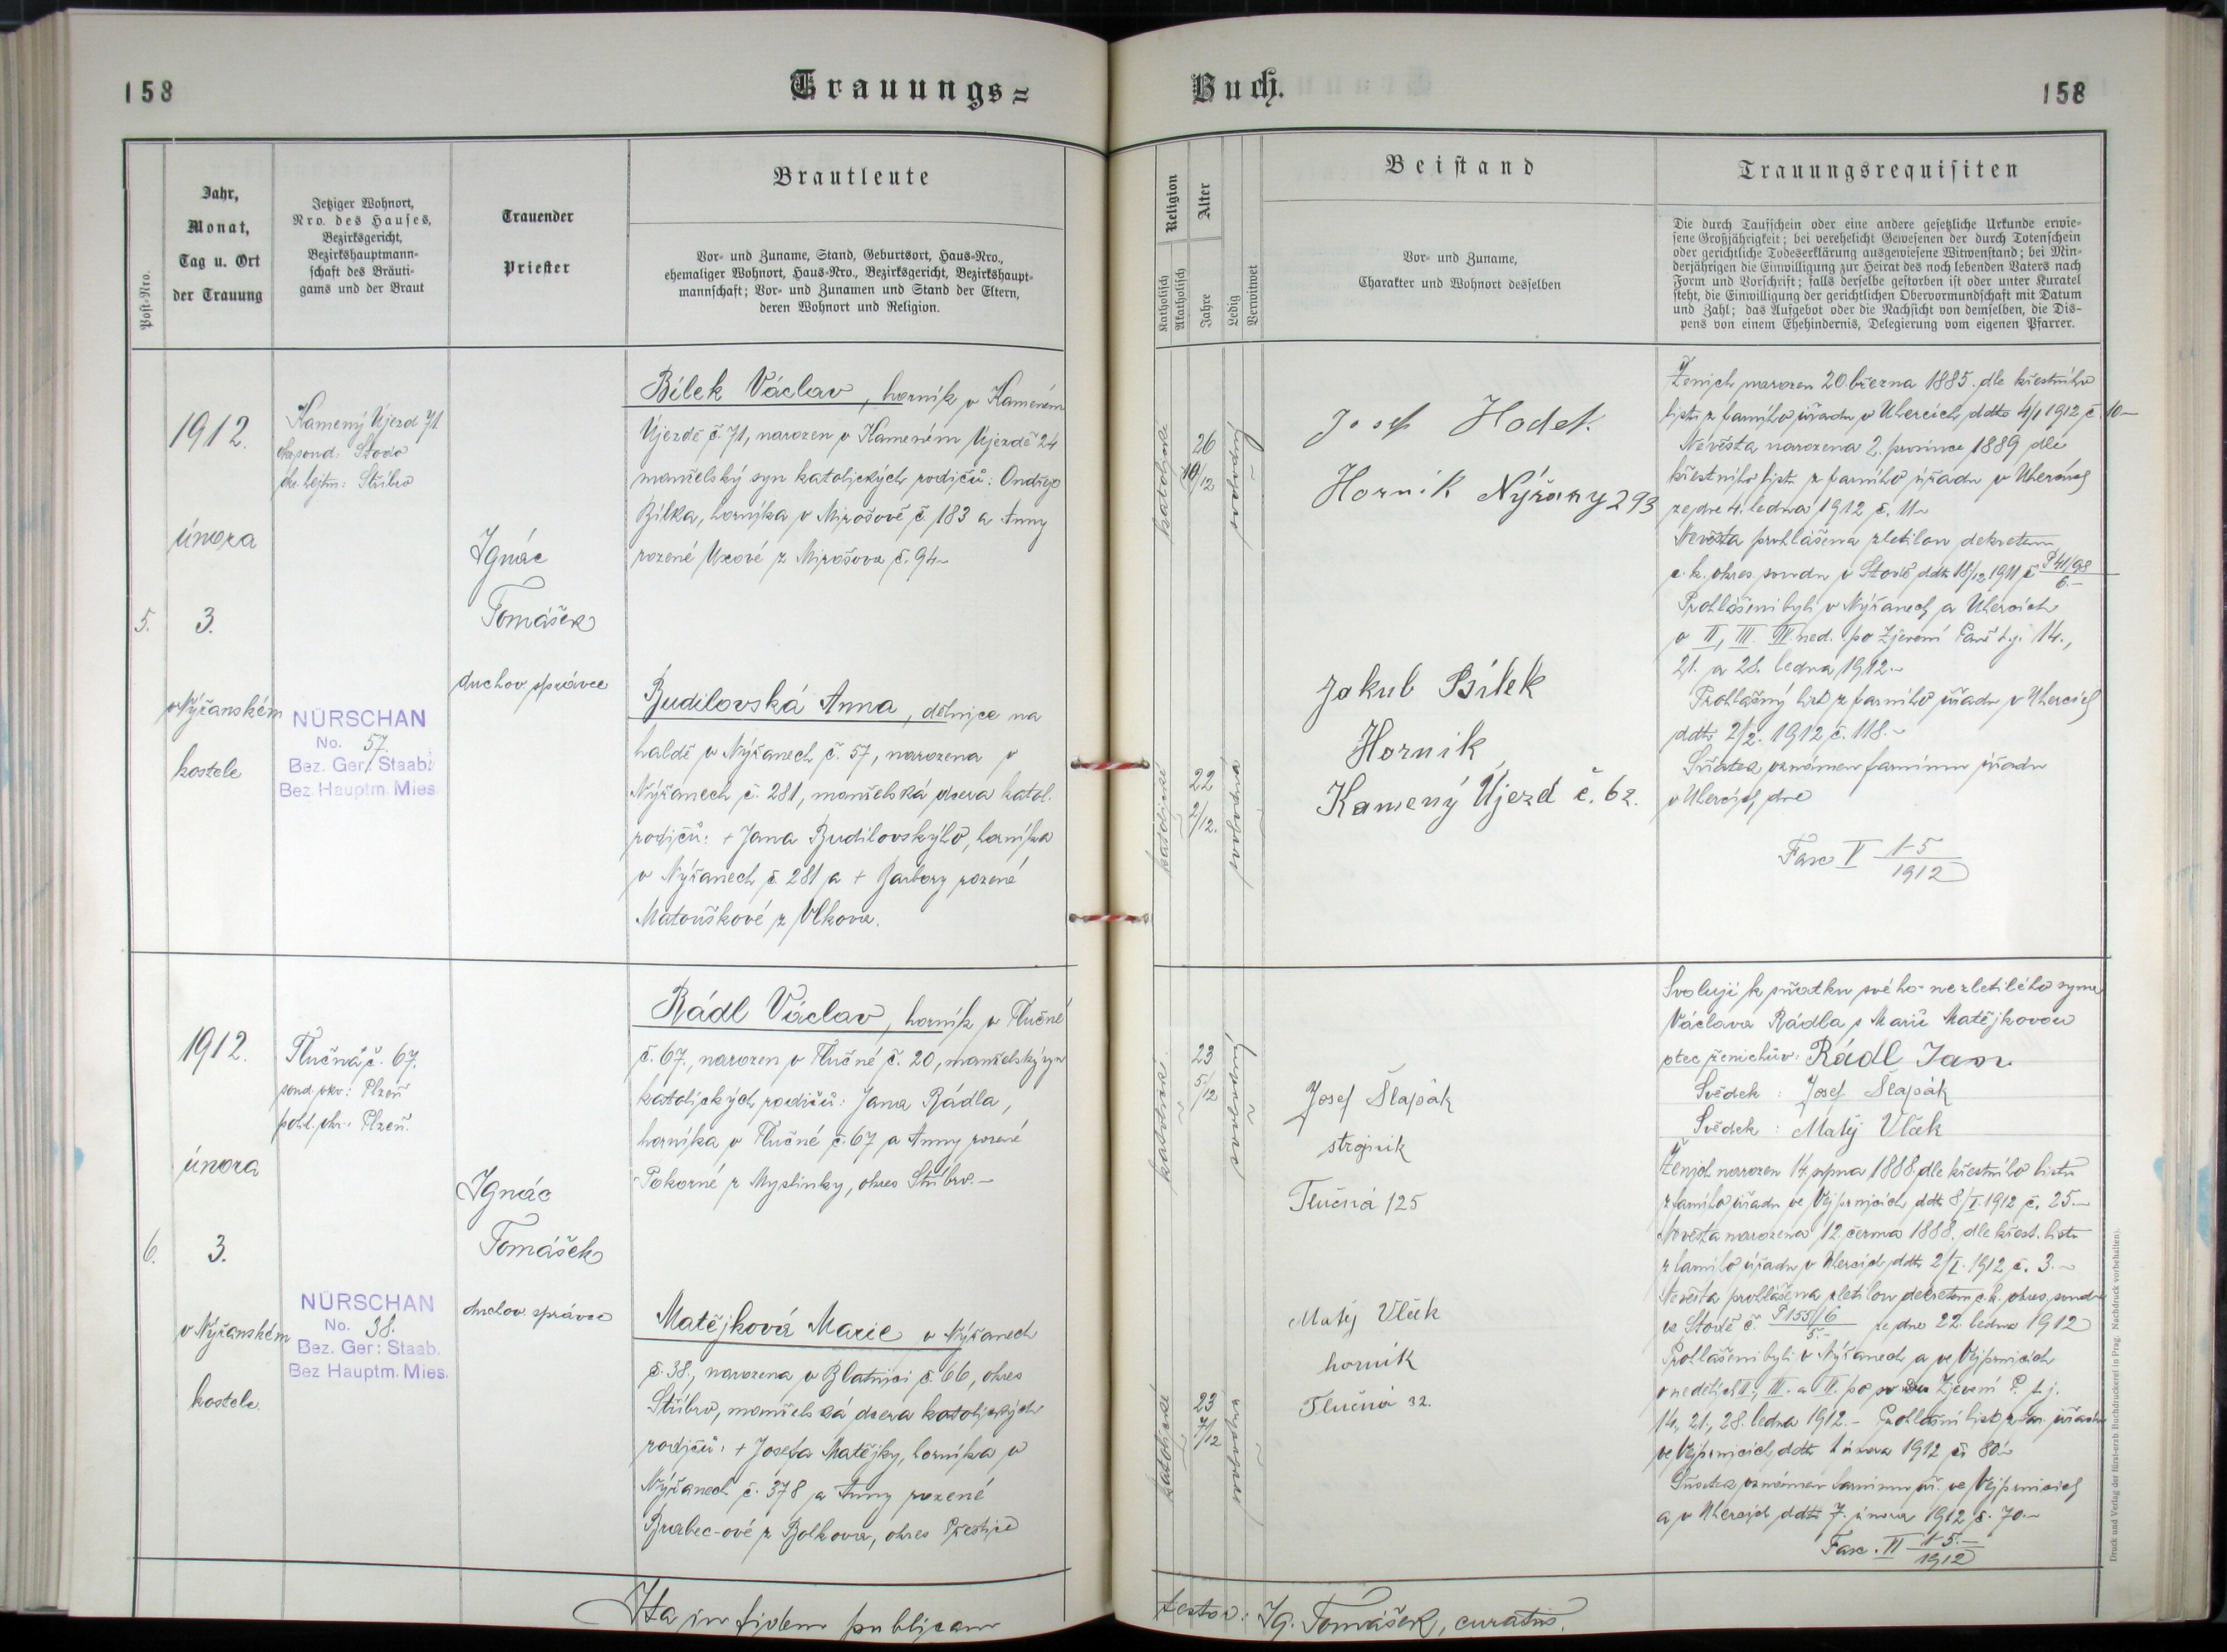 158
Trauungs=
Post-Nro.
Jahr,
Monat,
Tag u. Ort
der Trauung
Jetziger Wohnort,
Nro. des Hauses,
Bezirksgericht,
Bezirkshauptmann-
schaft des Bräuti-
gams und der Braut
Trauender
Priester
Brautleute
Vor- und Zuname, Stand, Geburtsort, Haus-Nro.,
ehemaliger Wohnort, Haus-Nro., Bezirksgericht, Bezirkshaupt-
mannschaft; Vor- und Zunamen und Stand der Eltern,
deren Wohnort und Religion.
5.
1912.
února
3.
v Nýřanském
kostele
Kamený Újezd 71
okr. soud: Stod
okr. hejtm: Stříbro
NÜRSCHAN
No. 57.
Bez. Ger: Staab.
Bez. Hauptm. Mies
Ignác
Tomášek
duchov. správce
Bílek Václav, horník v Kameném
Újezdě č. 71, narozen v Kameném Újezdě 24
manželský syn katolických rodičů: Ondřeje
Bílka, horníka v Mirošově č. 183 a Anny
rozené z Mirošova č. 94
Budilovská Anna, dělnice na
haldě v Nýřanech č. 57, narozena v
Nýřanech č. 281, manželská dcera katol.
rodičů: + Jana Budilovského, horníka
v Nýřanech č. 281 a + Barbory rozené
Matouškové z Vlkova.
6.
1912.
února
3.
v Nýřanském
kostele.
Tlučná č. 67.
soud. okr: Plzeň
polit. okr.: Plzeň.
NÜRSCHAN
No. 38.
Bez. Ger: Staab.
Bez Hauptm. Mies.
Ignác
Tomášek
duchov. správce
Rádl Václav, horník v Tlučné
č. 67., narozen v Tlučné č. 20, manželský syn
katolických rodičů: Jana Rádla,
horníka v Tlučné č. 67 a Anny rozené
Pokorné z Myslinky, okres Stříbro.-
Matějková Marie v Nýřanech
č. 38., narozena v Blatnici č. 66, okres
Stříbro, manželská dcera katolických
rodičů: + Josefa Matějky, horníka v
Nýřanech č. 378 a Anny rozené
Brabec-ové z Bolkova, okres Přeštice
Ita in fidem publicam
Buch.
158
Religion
Katholisch
Akatholisch
Alter
Jahre
Ledig
Verwitwet
Beistand
Vor- und Zuname,
Charakter und Wohnort desselben
Trauungsrequisiten
Die durch Taufschein oder eine andere gesetzliche Urkunde erwie-
sene Großjährigkeit; bei verehelicht Gewesenen der durch Totenschein
oder gerichtliche Todeserklärung ausgewiesene Witwenstand; bei Min-
derjährigen die Einwilligung zur Heirat des noch lebenden Vaters nach
Form und Vorschrift; falls derselbe gestorben ist oder unter Kuratel
steht, die Einwilligung der gerichtlichen Obervormundschaft mit Datum
und Zahl; das Aufgebot oder die Nachsicht von demselben, die Dis-
pens von einem Ehehindernis, Delegierung vom eigenen Pfarrer.
katolické
26
10/12
svobodný
Josef Hodek
Horník Nýřany 293
katolické
22
2/12.
svobodná
Jakub Bílek
Horník
Kamený Újezd č. 62.
Ženich narozen 20. března 1885. dle křestního
listu z farního úřadu v Uhercích, ddto 4/I 1912, č. 10-
Nevěsta narozena 2. prosince 1889 dle
křestního listu z farního úřadu v Uhercích
ze dne 4. ledna 1912 č. 11-
Nevěsta prohlášena zletilou dekretem
c. k. okres. soudu v Stodě ddto 18/12 1911 č. P 41/98 6.-
Prohlášeni byli v Nýřanech a Uhercích
v II, III. IV. ned. po Zjevení Páně t.j. 14.,
21. a 28. ledna 1912.-
Prohlášný list z farního úřadu v Uhercích
ddto 2/2. 1912 č. 118.-
Sňatek oznámen farnímu úřadu
v Uhercích dne
Fasc V 1-5 1912
katolické
23
5/12
svobodný
Josef Šlapák
strojník
Tlučná 125
katolické
23
7/12
svobodná
Matěj Vlček
horník
Tlučná 32.
Svoluji k sňatku svého nezletilého syna
Václava Rádla s Marií Matějkovou
otec ženichův: Rádl Jan
Svědek : Josef Šlapák
Svědek : Matěj Vlček
Ženich narozen 14. srpna 1888, dle křestního listu
z farního úřadu ve Vejprnicích ddto 8/I. 1912 č. 25.-
Nevěsta narozena 12. června 1888. dle křest. listu
z farního úřadu v Uhercích ddto 2/I. 1912 č. 3.-
Nevěsta prohlášena zletilou dekretem c.k. okres. soudu
ve Stodě č. P 155/6 5.- ze dne 22. ledna 1912
Prohlášeni byli v Nýřanech a ve Vejprnicích
v nedělích II., III. a IV. po Zjevení P. t. j.
14., 21., 28. ledna 1912.- Prohlášní list z far. úřadu
ve Vejprnicích ddto 1 února 1912 č. 80.-
Sňatek oznámen farnímu úř. ve Vejprnicích
a v Uhercích ddto 7. února 1912 č. 70.-
Fasc. VI 1-5.- 1912
testor: Ig. Tomášek, curatus.
Druck und Verlag der fürst-erzb. Buchdruckerei in Prag. Nachdruck vorbehalten).